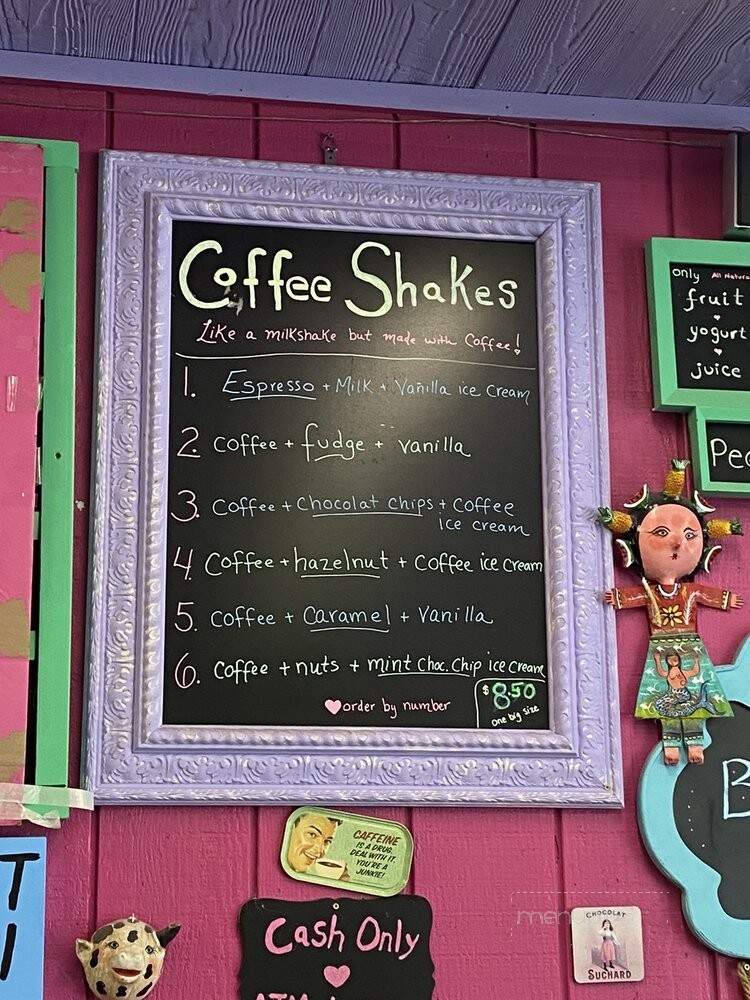 Coffee Shakes
Like a milkshake but made with Coffee!
1. Espresso + Milk + Vanilla ice Cream
2. Coffee + fudge + vanilla
3. Coffee + Chocolat Chips + Coffee
ice cream
4. Coffee + hazelnut + Coffee ice Cream
5. Coffee + Caramel + Vanilla
6. Coffee + nuts + mint Choc. Chip ice Cream
order by number
$8.50
one big size
only All Natura
fruit
yogurt
juice
Pe
CAFFEINE
IS A DRUG.
DEAL WITH IT.
YOU'RE A
JUNKIE!
Cash Only
ATM
CHOCOLAT
SUCHARD
men
T
B